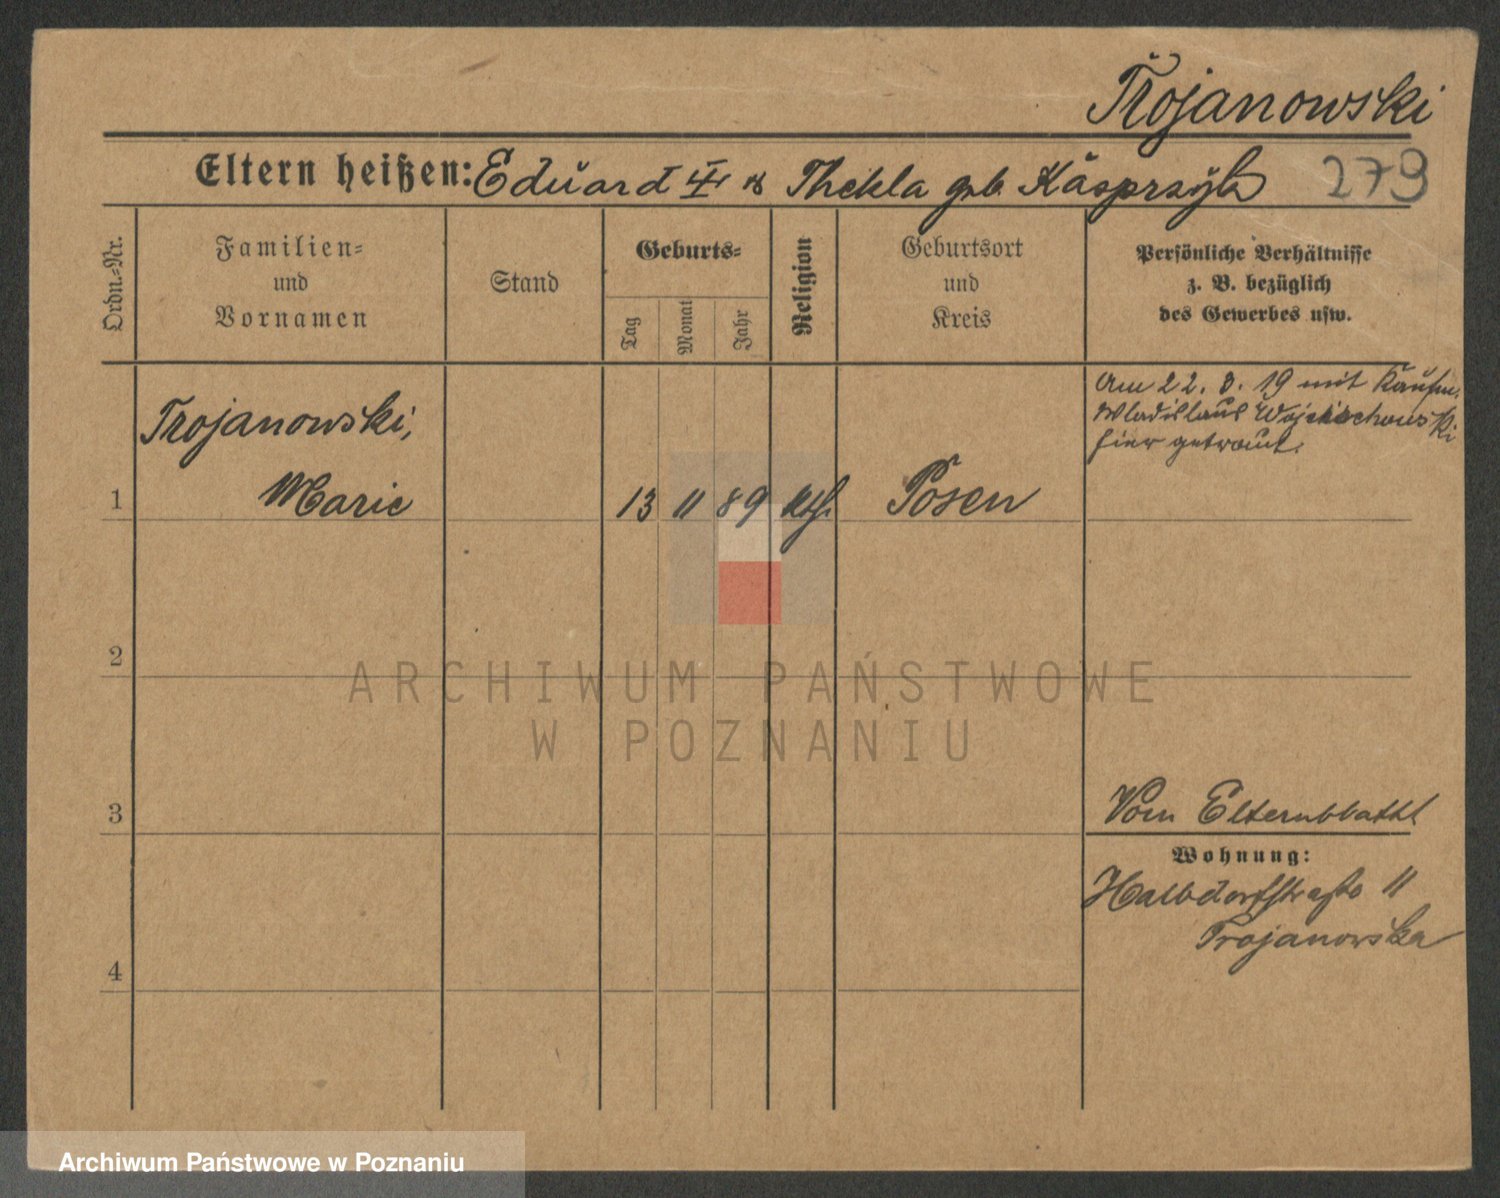 Trojanowski
Eltern heißen: Eduard II & Thekla geb. Kasprzyk 279
Ordn.=Nr.
Familien=
und
Vornamen
Stand
Geburts=
Tag
Monat
Jahr
Religion
Geburtsort
und
Kreis
Persönliche Verhältnisse
z. B. bezüglich
des Gewerbes usw.
Trojanowski,
1 Marie 13 11 89 kth. Posen
Am 22. 3. 19 mit Kaufm.
Wladislaus Wojciechowski
hier getraut.
2
3
4
Vom Elternblatt
Wohnung:
Halbdorfstraße 11
Trojanowska
ARCHIWUM PAŃSTWOWE
W POZNANIU
Archiwum Państwowe w Poznaniu